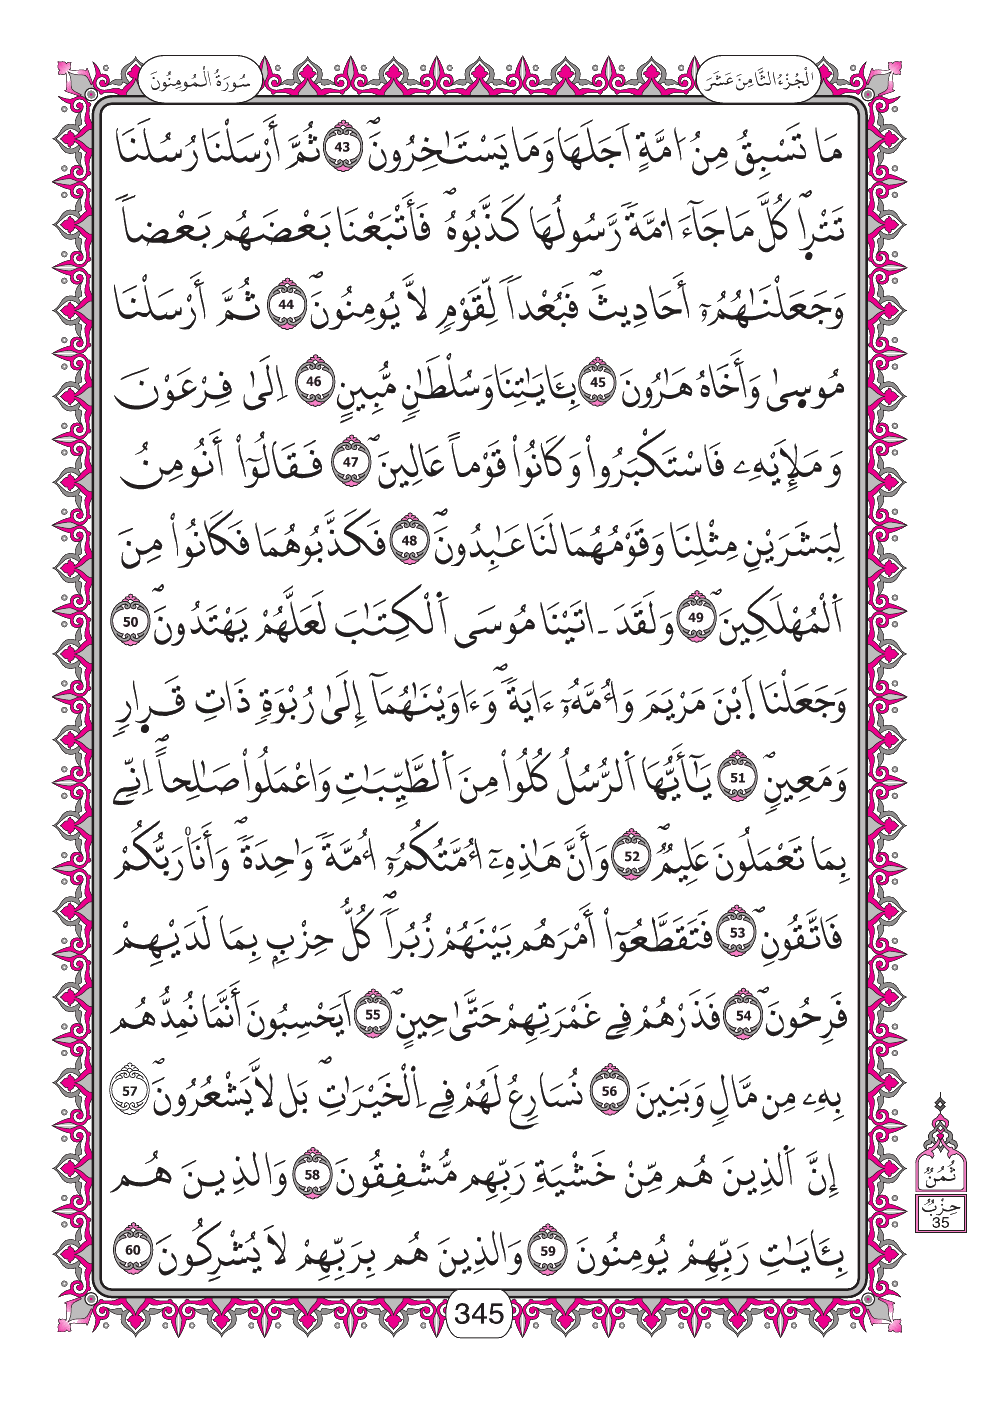 سُورَةُ الْمُومِنُونَ
الْجُزْءُ الثَّامِنَ عَشَرَ
مَا تَسْبِقُ مِنُ ا۟مَّةٍ اَجَلَهَا وَمَا يَسْتَـٰخِرُونَۖ 43 ثُمَّ أَرْسَلْنَا رُسُلَنَا
تَتْر۪اۖ كُلَّ مَا جَآءَ ا۟مَّةٗ رَّسُولُهَا كَذَّبُوهُۖ فَأَتْبَعْنَا بَعْضَهُم بَعْضاٗ
وَجَعَلْنَـٰهُمُۥٓ أَحَادِيثَۖ فَبُعْداٗ لِّقَوْمٖ لَّا يُومِنُونَۖ 44 ثُمَّ أَرْسَلْنَا
مُوس۪ىٰ وَأَخَاهُ هَـٰرُونَ 45 بِـَٔايَـٰتِنَا وَسُلْطَـٰنٖ مُّبِينٍ 46 اِلَىٰ فِرْعَوْنَ
وَمَلَإِيْهِۦ فَاسْتَكْبَرُواْ وَكَانُواْ قَوْماً عَالِينَۖ 47 فَقَالُوٓاْ أَنُومِنُ
لِبَشَرَيْنِ مِثْلِنَا وَقَوْمُهُمَا لَنَا عَـٰبِدُونَۖ 48 فَكَذَّبُوهُمَا فَكَانُواْ مِنَ
اَ۬لْمُهْلَكِينَۖ 49 وَلَقَدَ ـ اتَيْنَا مُوسَى اَ۬لْكِتَـٰبَ لَعَلَّهُمْ يَهْتَدُونَۖ 50
وَجَعَلْنَا اَ۪بْنَ مَرْيَمَ وَأُمَّهُۥٓ ءَايَةٗۖ وَءَاوَيْنَـٰهُمَآ إِلَىٰ رُبْوَةٖ ذَاتِ قَر۪ارٖ
وَمَعِينٖۖ 51 يَـٰٓأَيُّهَا اَ۬لرُّسُلُ كُلُواْ مِنَ اَ۬لطَّيِّبَـٰتِ وَاعْمَلُواْ صَـٰلِحاًۖ اِنِّے
بِمَا تَعْمَلُونَ عَلِيمٞۖ 52 وَأَنَّ هَـٰذِهِۦٓ أُمَّتُكُمُۥٓ أُمَّةٗ وَٰحِدَةٗۖ وَأَنَا۠ رَبُّكُمْ
فَاتَّقُونِۖ 53 فَتَقَطَّعُوٓاْ أَمْرَهُم بَيْنَهُمْ زُبُراٗۖ كُلُّ حِزْبِۢ بِمَا لَدَيْهِمْ
فَرِحُونَۖ 54 فَذَرْهُمْ فِے غَمْرَتِهِمْ حَتَّىٰ حِينٍۖ 55 اَيَحْسِبُونَ أَنَّمَا نُمِدُّهُم
بِهِۦ مِن مَّالٖ وَبَنِينَ 56 نُسَارِعُ لَهُمْ فِے اِ۬لْخَيْرَٰتِۖ بَل لَّا يَشْعُرُونَۖ 57
إِنَّ اَ۬لذِينَ هُم مِّنْ خَشْيَةِ رَبِّهِم مُّشْفِقُونَ 58 وَالذِينَ هُم
بِـَٔايَـٰتِ رَبِّهِمْ يُومِنُونَ 59 وَالذِينَ هُم بِرَبِّهِمْ لَا يُشْرِكُونَ 60
ثُمُنٌ
حِزْبُ
35
345